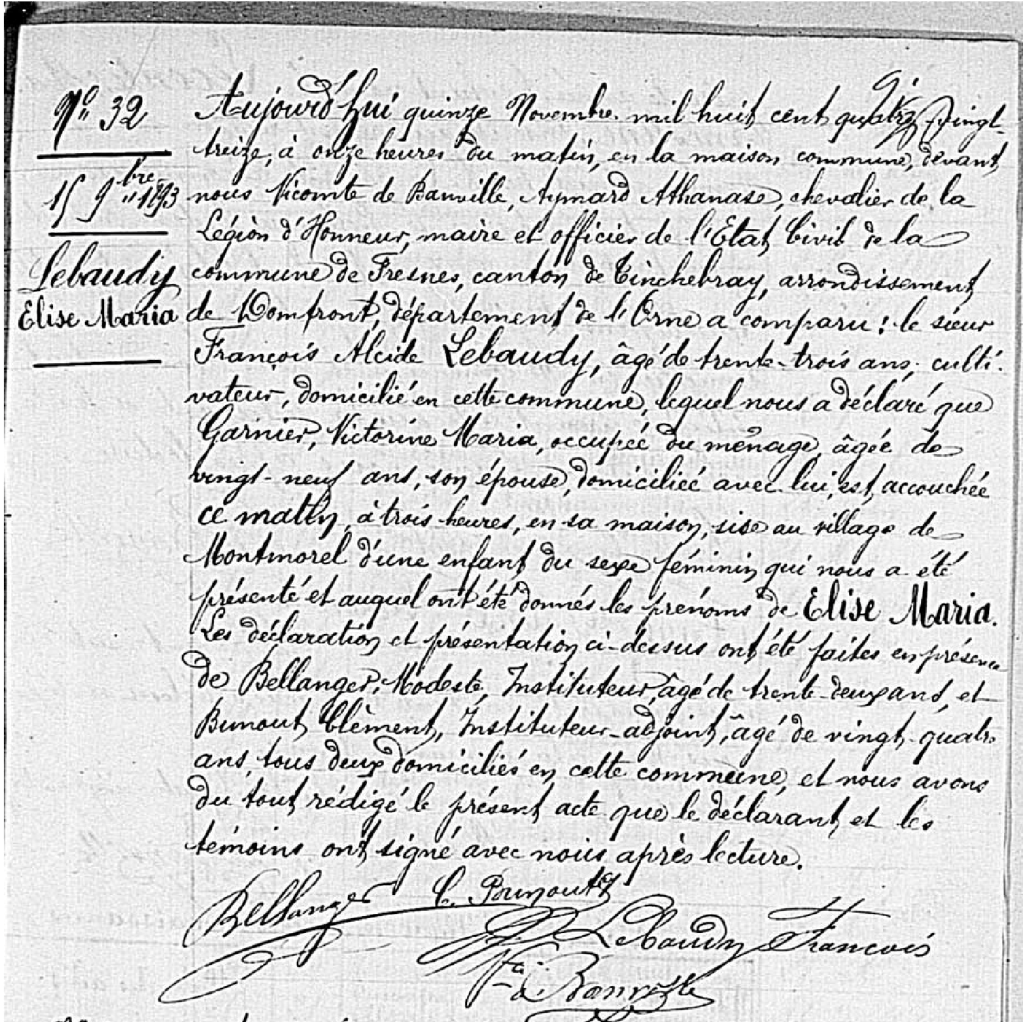 N° 32
15 9bre 1893
Lebaudy
Elise Maria
Aujourd'hui quinze Novembre mil huit cent quatre vingt-
treize, à onze heures du matin, en la maison commune, devant
nous Vicomte de Banville, Aymard Athanase, chevalier de la
Légion d'Honneur, maire et officier de l'Etat Civil de la
commune de Fresnes, canton de Tinchebray, arrondissement
de Domfront, département de l'Orne a comparu : le sieur
François Alcide Lebaudy, âgé de trente-trois ans, culti-
vateur, domicilié en cette commune, lequel nous a déclaré que
Garnier, Victorine Maria, occupée du ménage, âgée de
vingt-neuf ans, son épouse, domiciliée avec lui, est accouchée
ce matin, à trois heures, en sa maison, sise au village de
Montmorel d'une enfant du sexe féminin qui nous a été
présenté et auquel ont été donnés les prénoms de Elise Maria.
Les déclaration et présentation ci-dessus ont été faites en présence
de Bellanger, Modeste, Instituteur, âgé de trente-deux ans, et
Bunout, Clément, Instituteur-adjoint, âgé de vingt-quatre
ans, tous deux domiciliés en cette commune, et nous avons
du tout rédigé le présent acte que le déclarant et les
témoins ont signé avec nous après lecture.
Bellanger C. Bunout
Lebaudy François
Vte de Banville